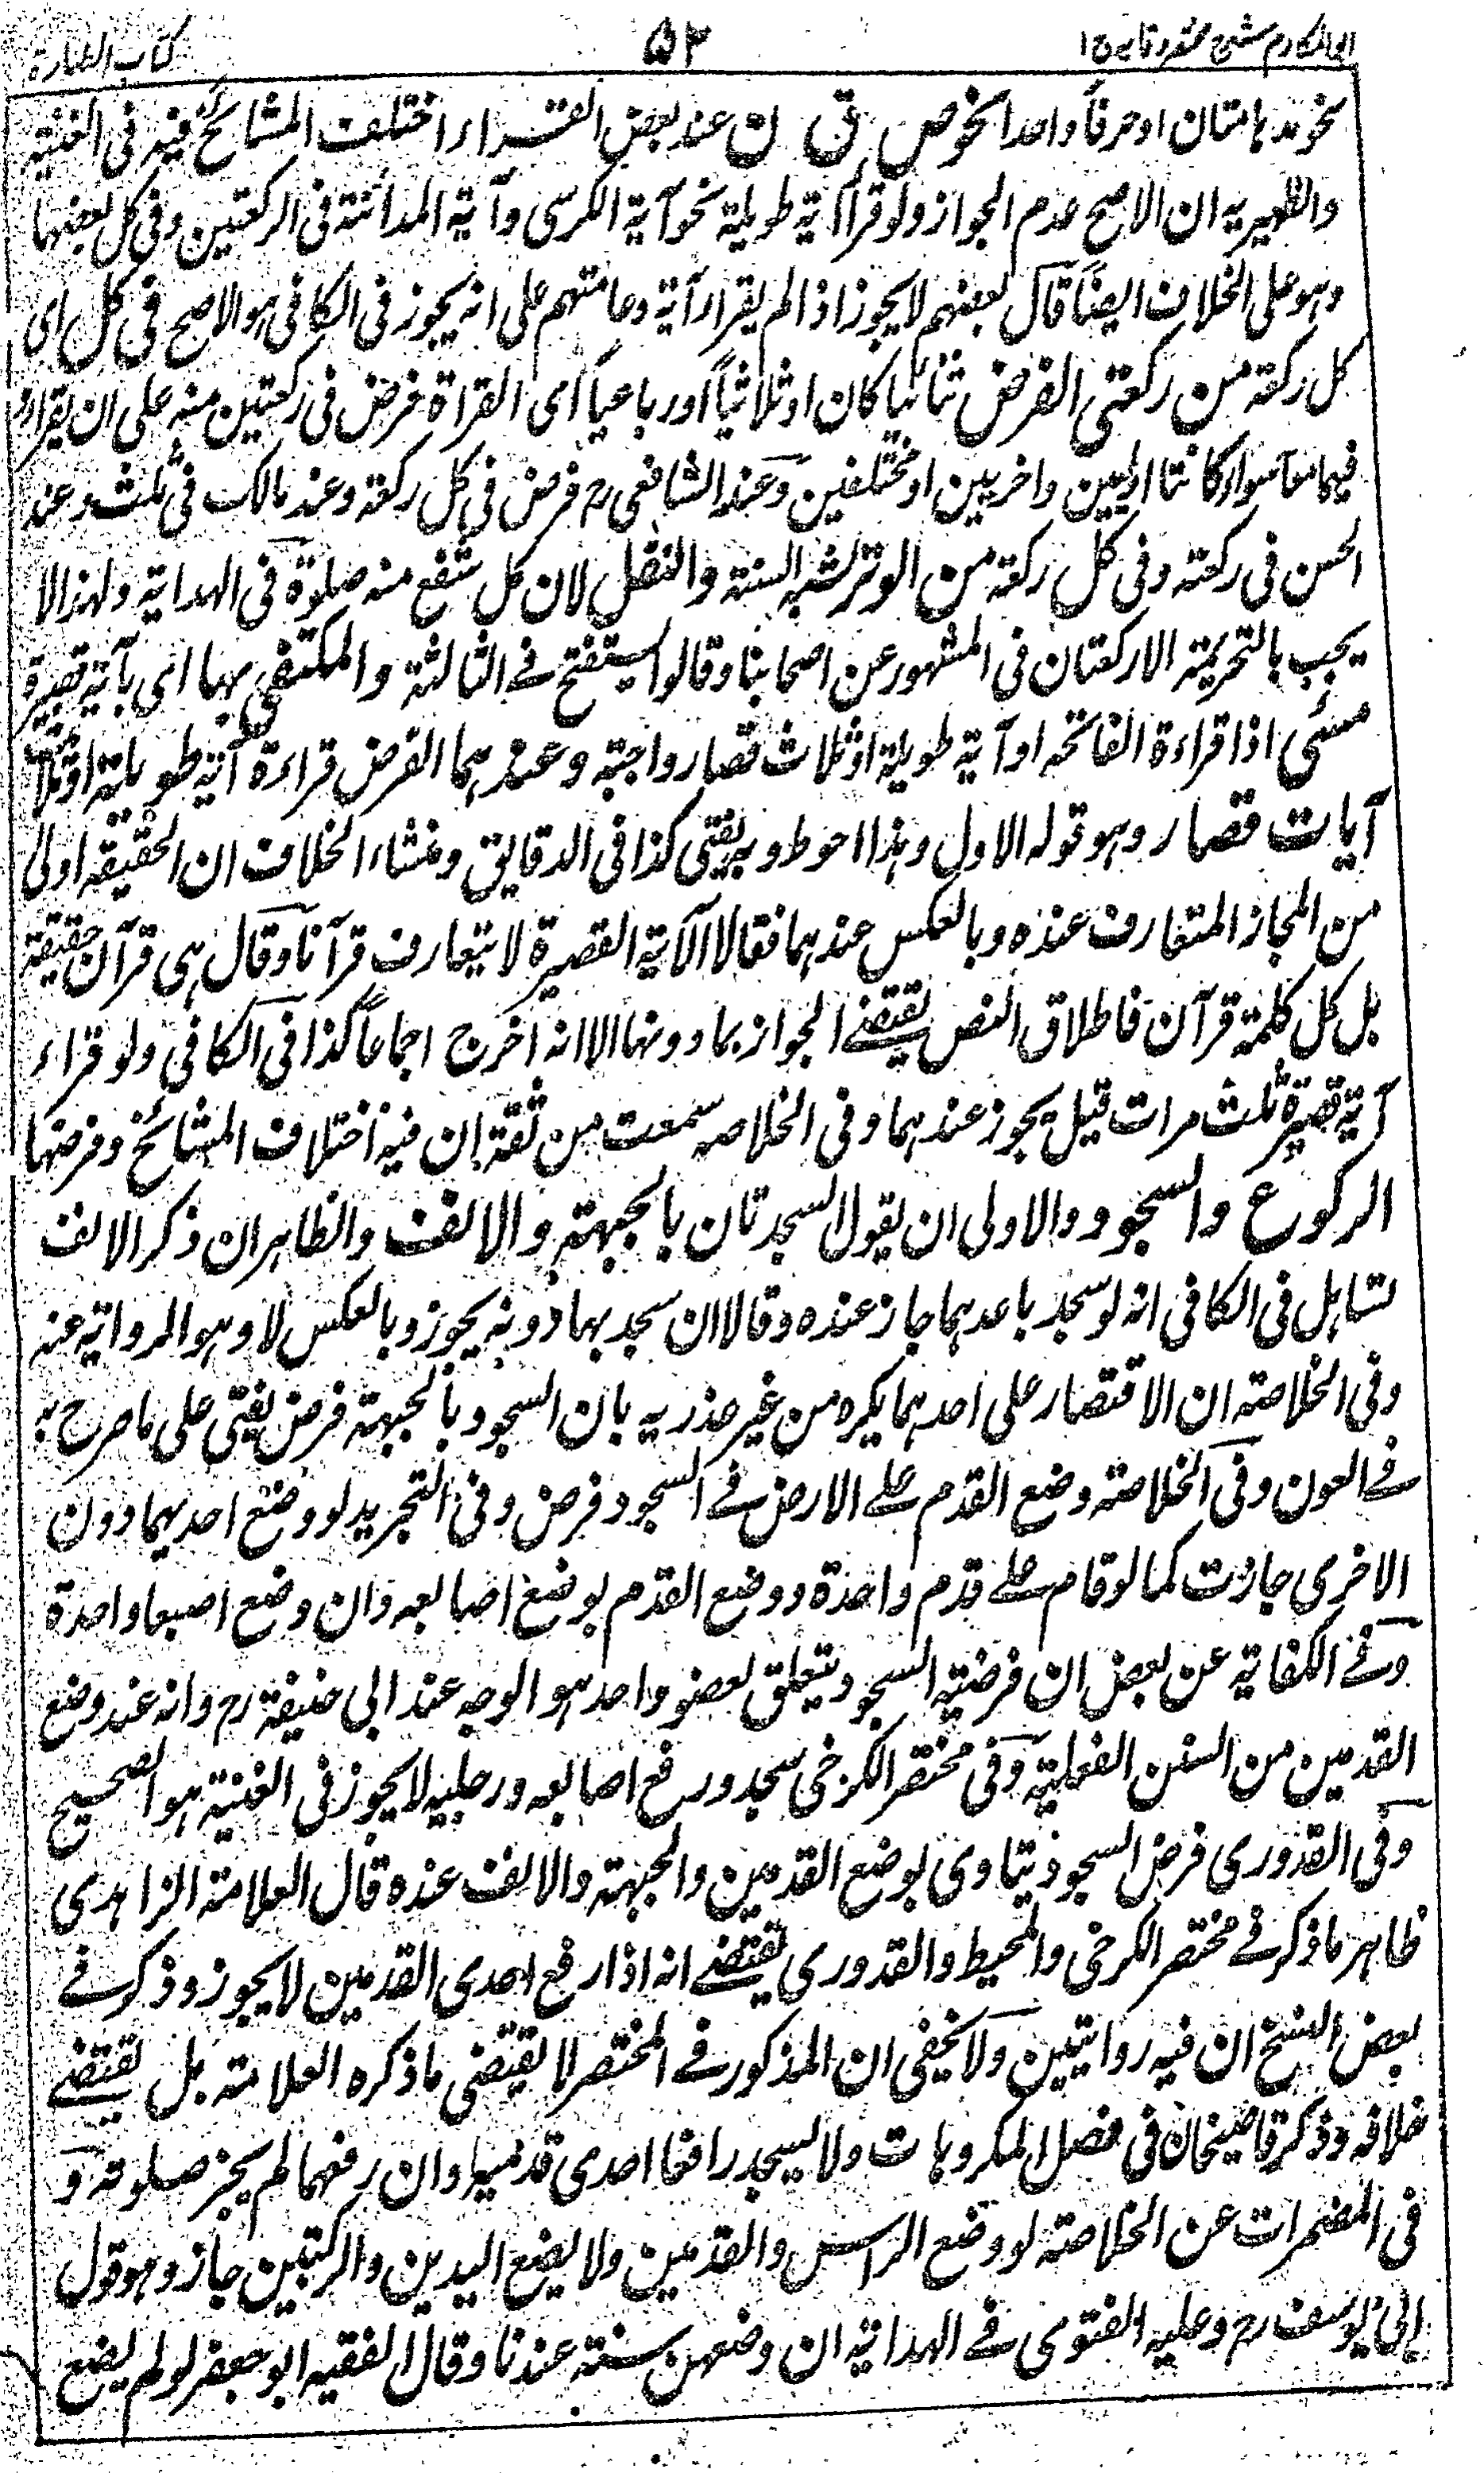 ابو المکارم شرح مختصر وقایہ ج ۱
۵۲
کتاب الطہارۃ
نحو مدہامتان او حرفاً واحدا نحو ص ق ن عند بعض القراء اختلف المشائخ فیہ فی الغنیۃ
والظہیریہ ان الاصح عدم الجواز ولو قرأ آیۃ طویلۃ نحو آیۃ الکرسی وآیۃ المداینۃ فی الرکعتین وفی کل بعضہا
وہو علی الخلاف ایضاً قال بعضہم لایجوز اذا لم یقرأ آیۃ وعامتہم علی انہ یجوز فی الکافی ہو الاصح فی کل ای
کل رکعۃ من رکعتی الفرض ثنائیا کان او ثلاثیاً او رباعیاً ای القراۃ فرض فی رکعتین منہ علی ان یقرأ
فیہما سواء کانتا اولیین واخریین او مختلفین وعند الشافعی رح فرض فی کل رکعۃ وعند مالک فی ثلث وعند
الحسن فی رکعتہ وفی کل رکعۃ من الوتر لشبہ السنۃ والنفل لان کل شفع منہ صلوۃ فی الہدایۃ ولہذا لا
یجب بالتحریمۃ الا رکعتان فی المشہور عن اصحابنا وقالوا یستفتح فی الثالثۃ والمکتفی بہا ای بآیۃ قصیرۃ
مسئ اذا قراءۃ الفاتحہ او آیۃ طویلۃ او ثلاث قصار واجبۃ وعندہما الفرض قراءۃ آیۃ طویلۃ او ثلاث
آیات قصار وہو قولہ الاول وہذا احوط وبہ یفتی کذا فی الدقایق ومنشاء الخلاف ان الحقیقۃ اولی
من المجاز المتعارف عندہ وبالعکس عندہما فقالا الآیۃ القصیرۃ لا یتعارف قرآنا وقال ہی قرآن حقیقۃ
بل کل کلمۃ قرآن فاطلاق النص یقتضے الجواز بما دونہا الا انہ اخرج اجماعاً کذا فی الکافی ولو قراء
آیۃ قصیرۃ ثلث مرات قیل یجوز عندہما وفی الخلاصہ سمعت من ثقۃ ان فیہ اختلاف المشائخ وفرضہا
الرکوع والسجود والاولی ان یقول السجدتان بالجبہۃ والانف والظاہر ان ذکر الانف
تساہل فی الکافی انہ لو سجد باحدہما جاز عندہ وقالا ان سجد بہا دونہ یجوز وبالعکس لا وہو المروایۃ عنہ
وفی الخلاصۃ ان الاقتصار علی احدہما یکرہ من غیر عذر بہ بان السجود بالجبہۃ فرض یفتی علی ما صرح بہ
فے العون وفی الخلاصۃ وضع القدم علے الارض فے السجود فرض وفی التجرید لو وضع احدیہما دون
الاخری جازت کما لو قام علے قدم واحدۃ ووضع القدم بوضع اصابعہ وان وضع اصبعا واحدۃ
وفے الکفایۃ عن بعض ان فرضیۃ السجود یتعلق بعضو واحد ہو الوجہ عند ابی حنیفۃ رح وانہ عند وضع
القدمین من السنن الفعلیۃ وفی مختصر الکرخی سجد ورفع اصابعہ ورجلیہ لایجوز فی الغنیۃ ہو الصحیح
وفی القدوری فرض السجود یتاوی بوضع القدمین والجبہۃ والانف عندہ قال العلامۃ الزاہدی
ظاہر ما ذکر فے مختصر الکرخی والمحیط والقدوری یقتضے انہ اذا رفع احدی القدمین لا یجوز وذکر فے
بعض النسخ ان فیہ روایتین ولا یخفی ان المذکور فے المختصر لا یقتضی ما ذکرہ العلامۃ بل یقتضے
خلافہ وذکر قاضیخان فی فصل المکروہات ولا یسجد رافعا احدی قدمیہ وان رفعہما لم یجز صلوتہ و
فی المضمرات عن الخلاصۃ لو وضع الراس والقدمین ولا یضع الیدین والرکبتین جاز وہو قول
ابی یوسف رح وعلیہ الفتوی فے الہدایۃ ان وضعہن سنۃ عندنا وقال الفقیہ ابو جعفر لو لم یضع